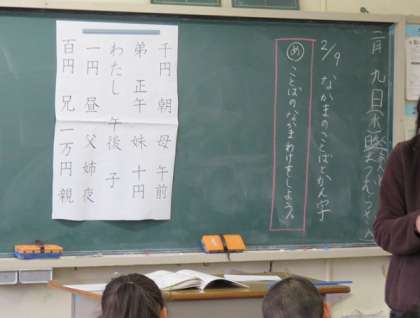 二月九日(水)
2/9 なかまのことばとかん字
め ことばのなかまわけをしよう。
千円 朝 母 午前
弟 正午 妹 十円
わたし 午後 子
一円 昼 父 姉 夜
百円 兄 一万円 親